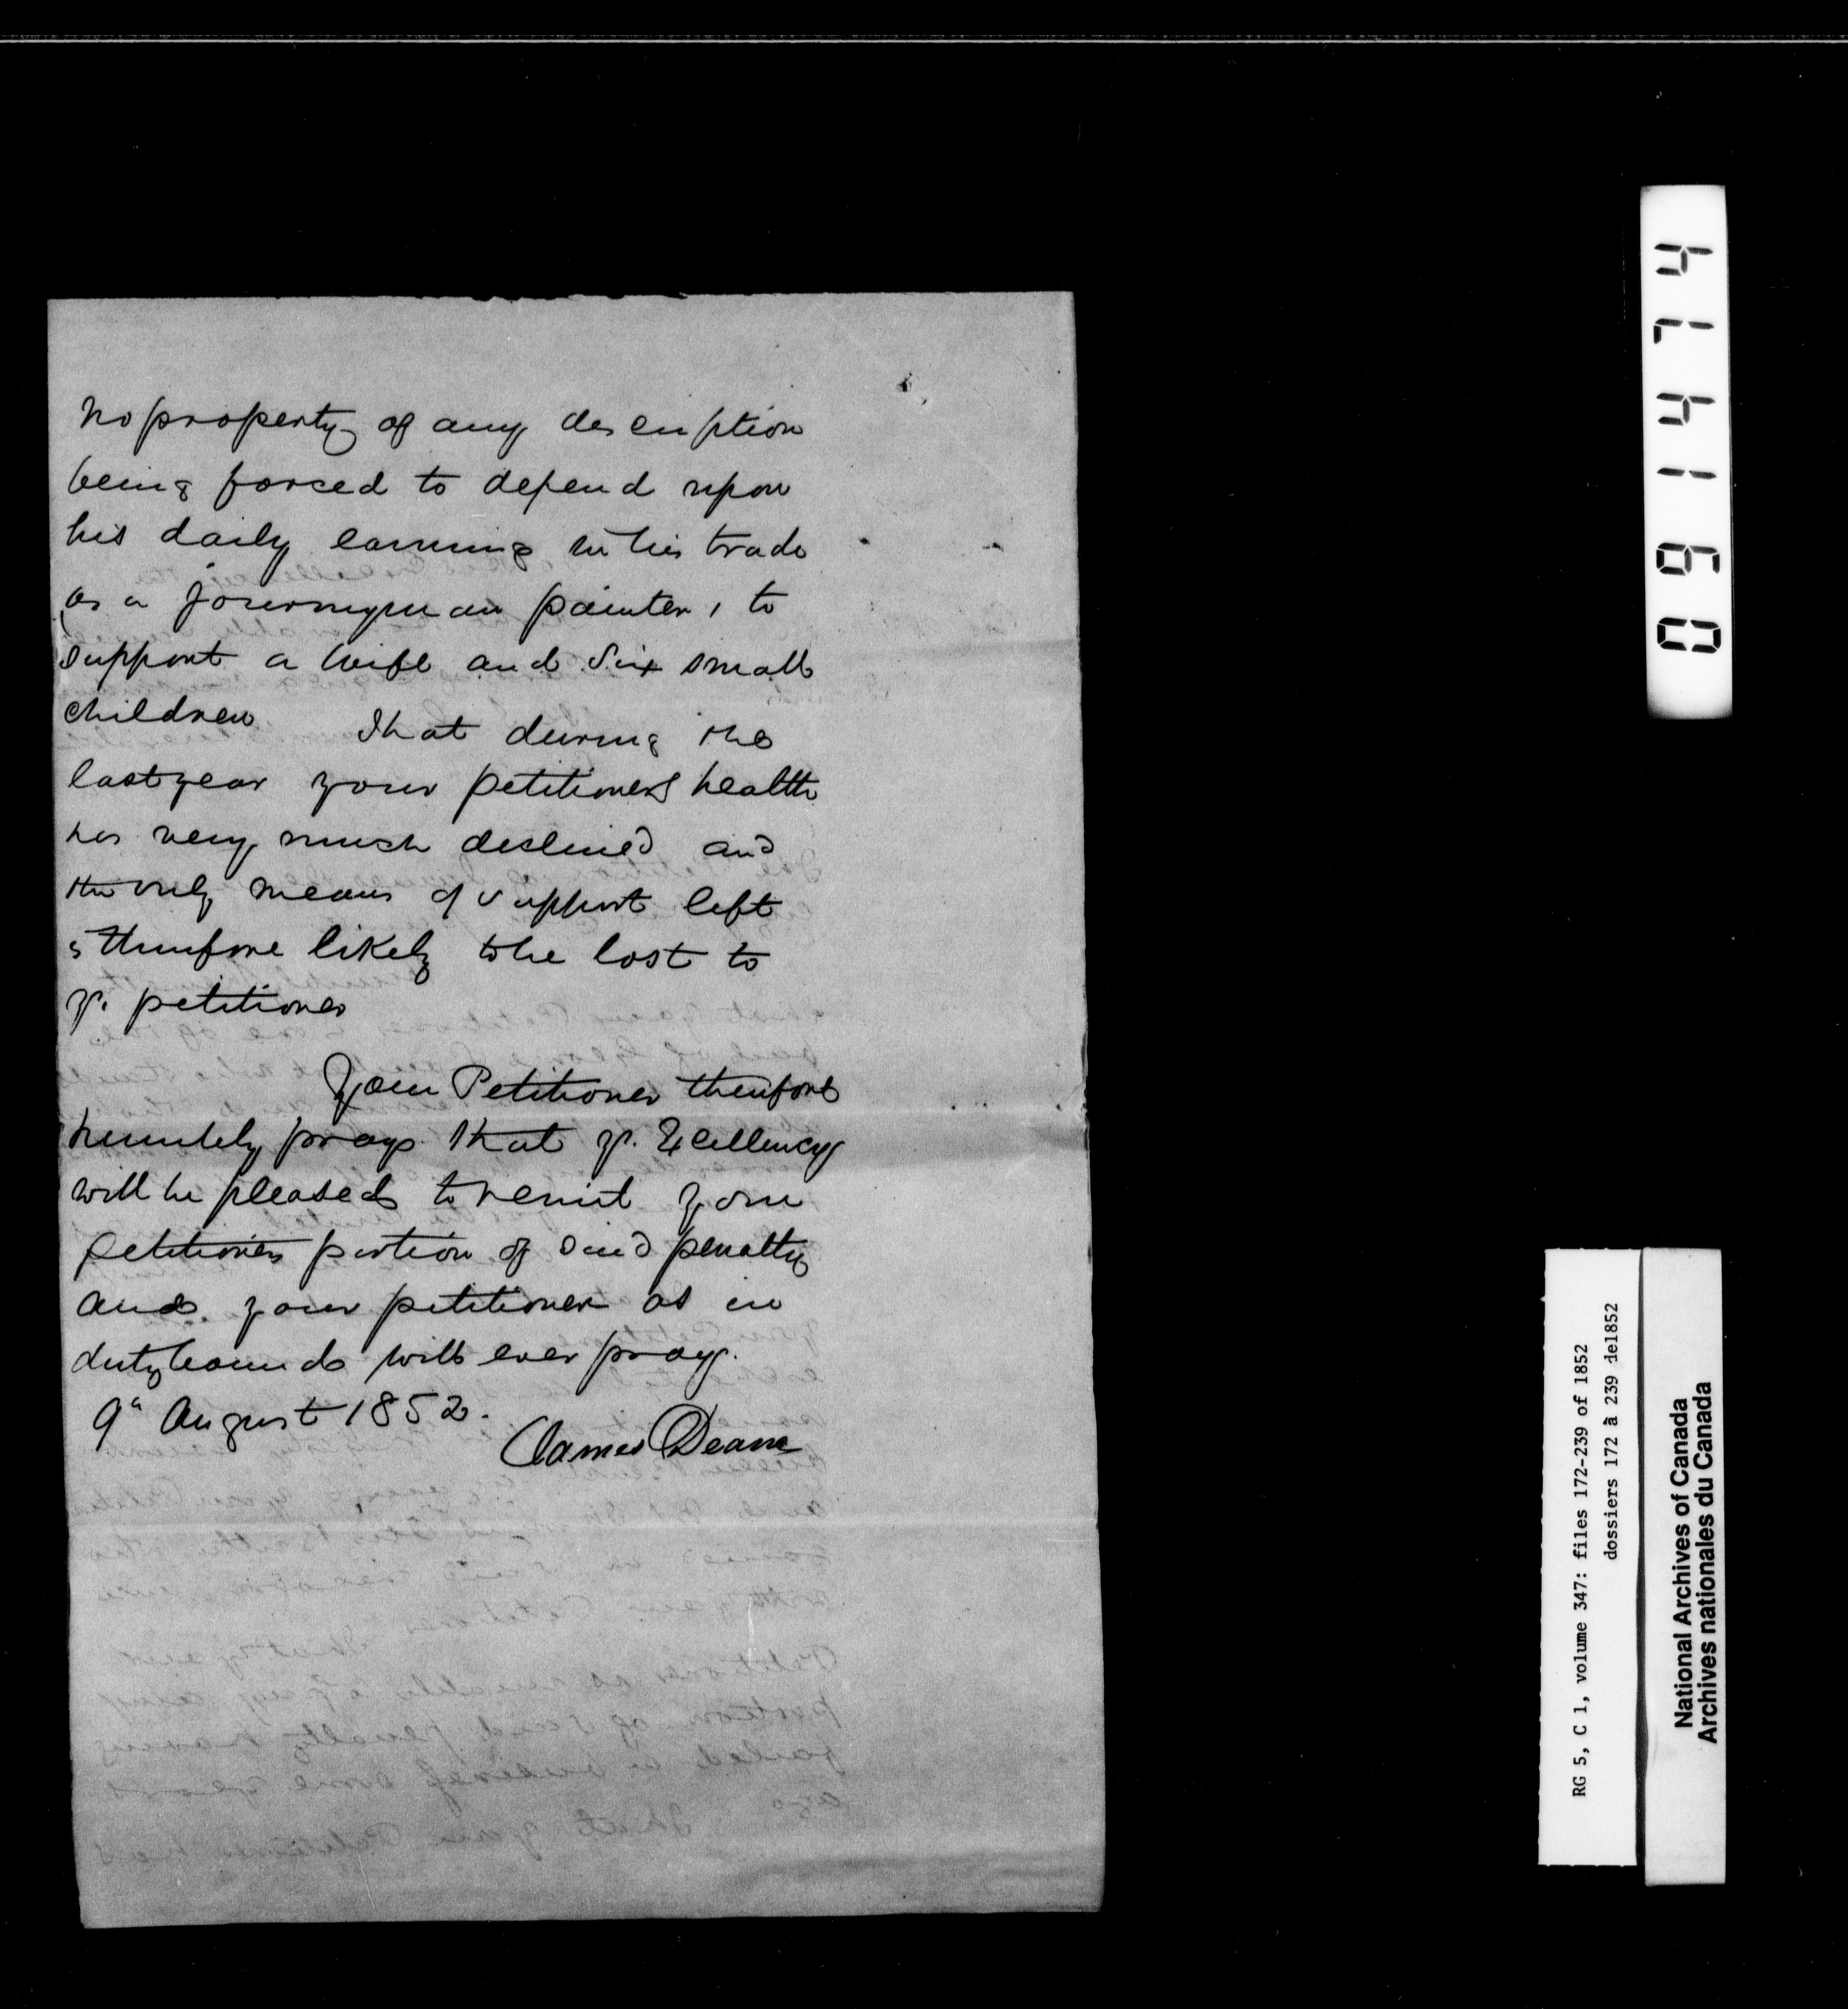 no property of any description
being forced to depend upon
his daily earning in his trade
as a journeyman painter, to
support a wife and Six small
children That during the
last year your petitioners health
has very much declined and
the only means of support left
is therefore likely to be lost to
yr. petitioner
Your Petitioner therefore
humbly prays that yr. Excellency
will be pleased to remit your
petitioners portion of said penalty
and your petitioner as in
duty bound will ever pray.
9th August 1852.
James Deane
0 9 1 4 7 4
RG 5, C 1, volume 347: files 172-239 of 1852
dossiers 172 à 239 de1852
National Archives of Canada
Archives nationales du Canada